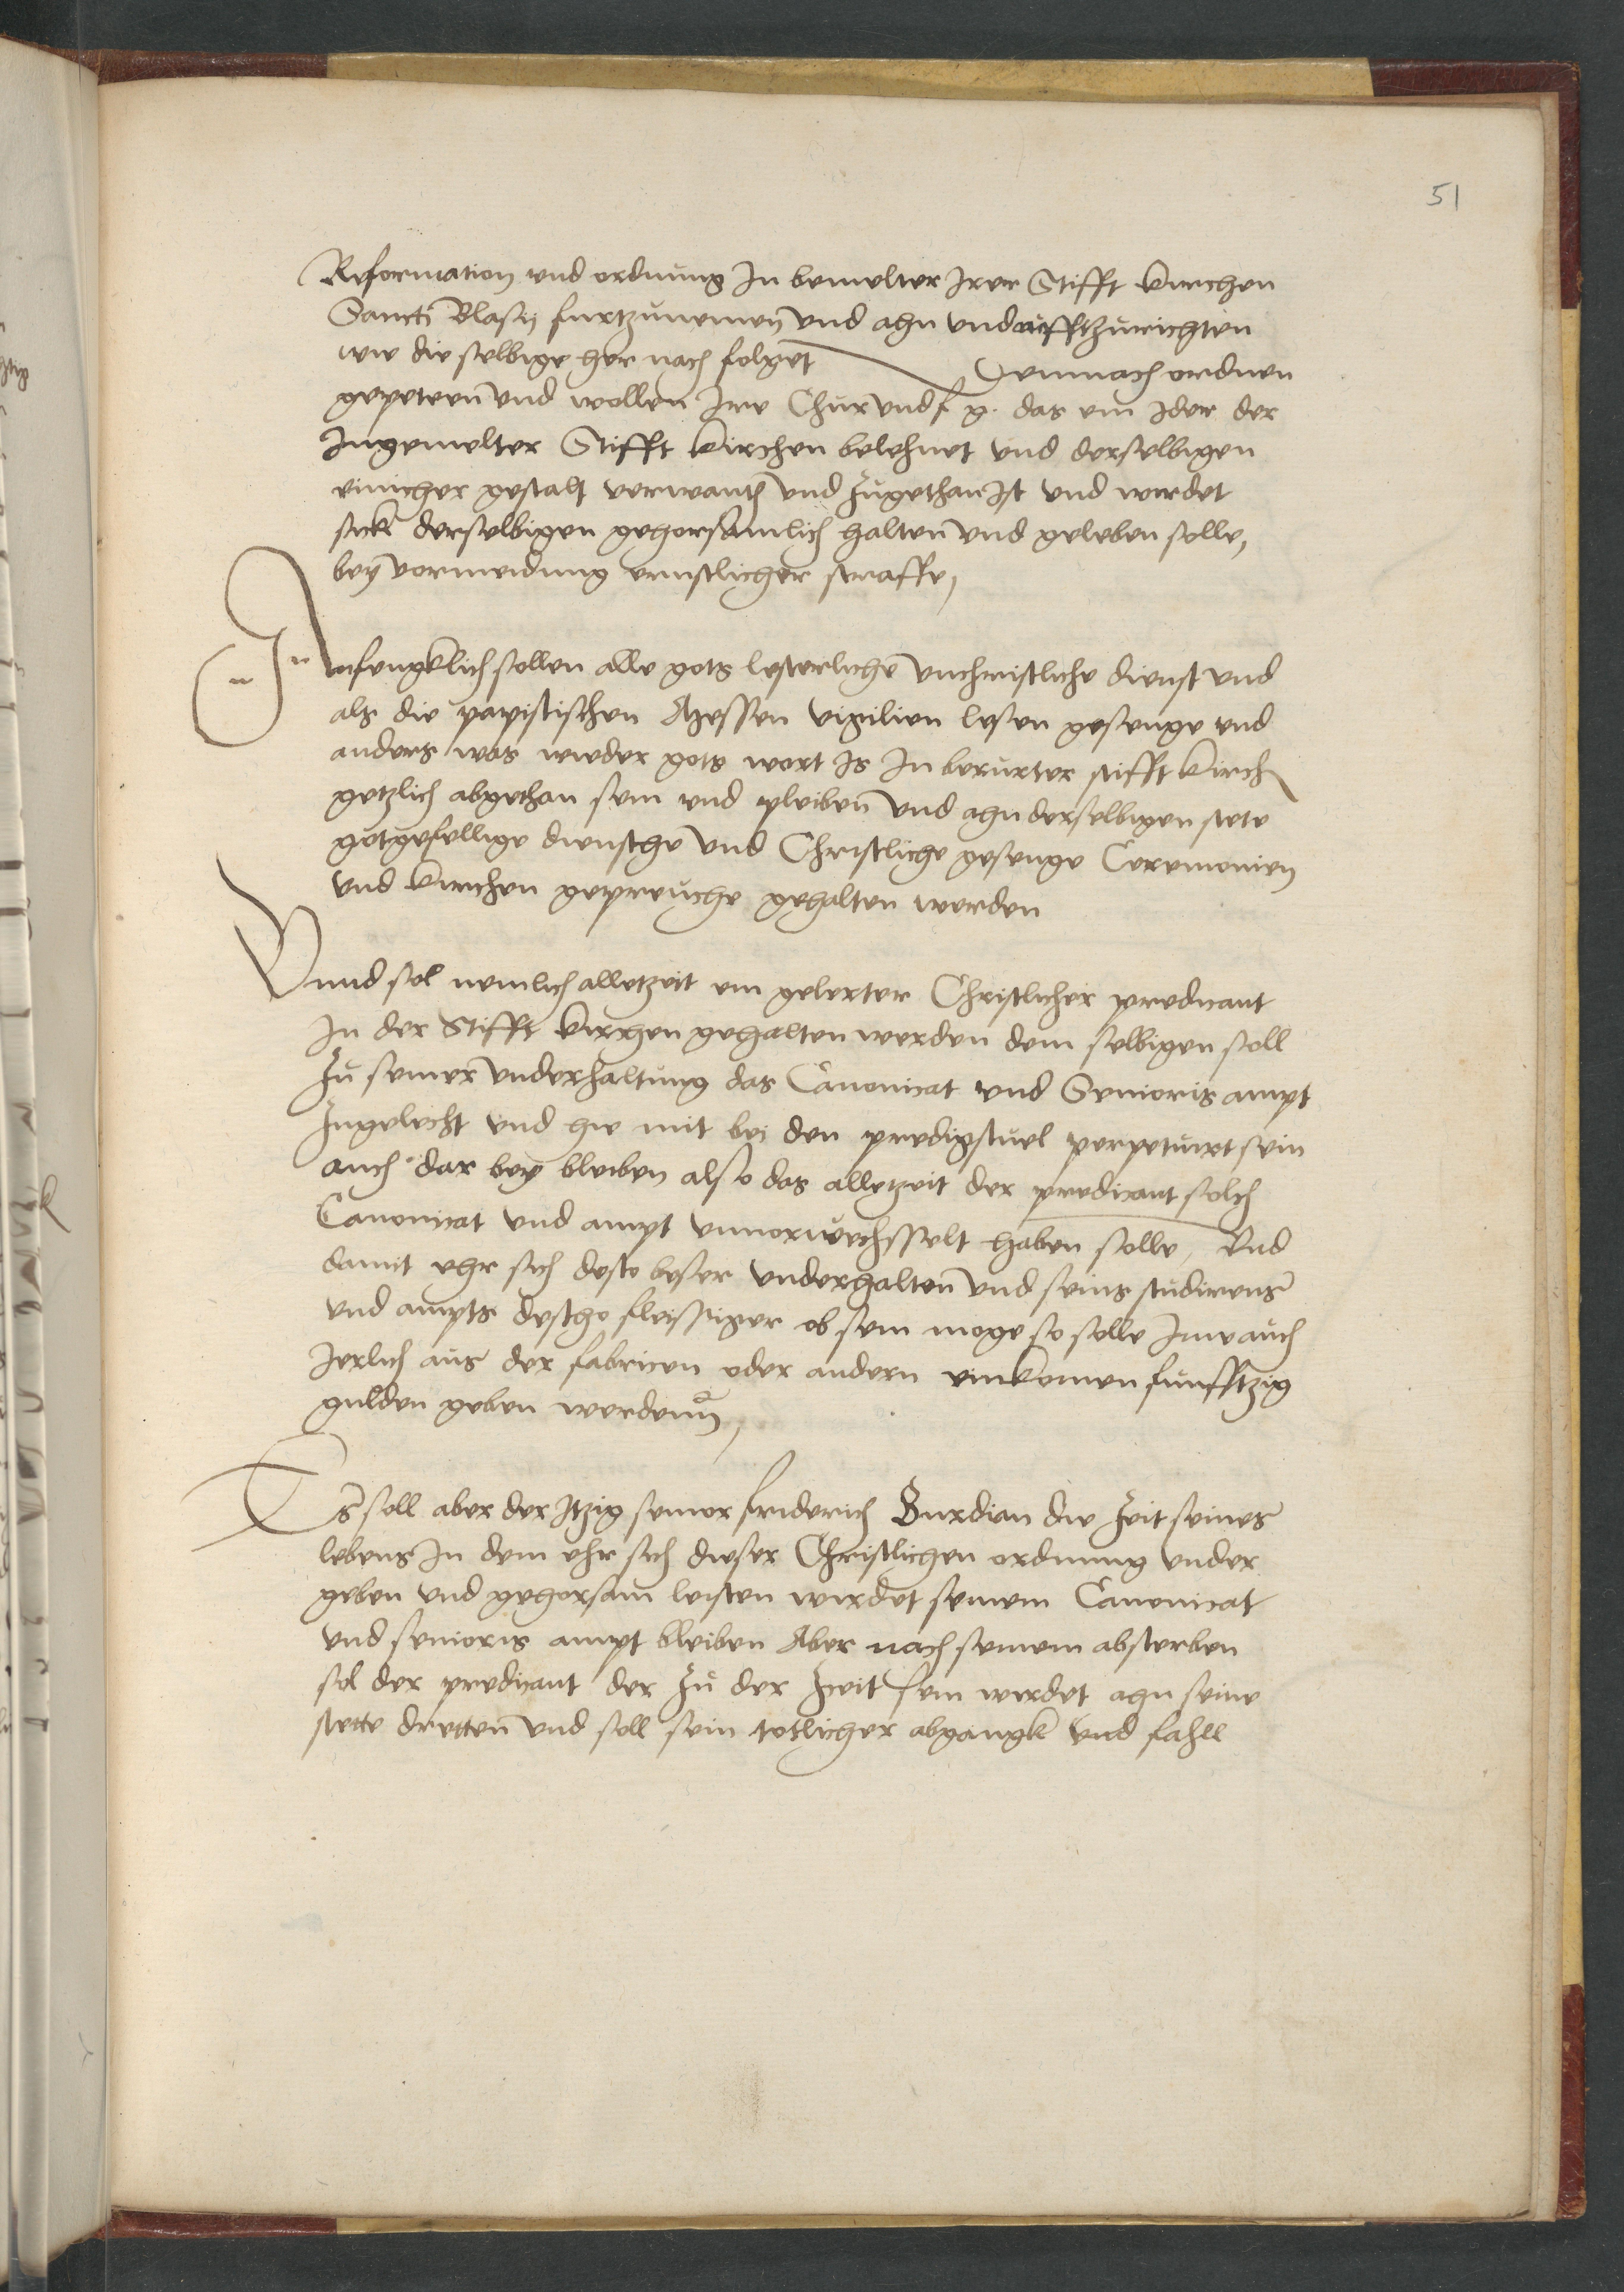 51
Reformation und ordnung In bemelter Irer Stifft kirchen
Sancti Blasij furtzunemen und ahn und uffthzurichten
wie die selbige her nach folget Demnach ordnen
gepeten und wollen Ire Chur und f g. das ein Ider der
Ingemelter Stifft kirchen belehnet und derselbigen
einicher gestalt verwanth und zugethan Ist und wirdet
sich derselbigen gehorsamlich halten und geleben solle,
bey vormeidung ernstlicher straffe,
Anfengklich sollen alle gots lesterliche unchristliche dienst und
als die papistischen Messen vigilien lesen gesenge und
anders was wieder gots wort Is In berurter stifft kirch
getzlich abgethan sein und pleiben und ahn derselbigen stete
gotgefellige dienste und Christliche gesenge Ceremonien
und kirchen gepreuche gehalten werden
Unnd sol nemlich alletzeit ein gelerter Christlicher predicant
In der Stifft kirchen gehalten werden dem selbigen soll
zu seiner underhaltung das Canonicat und Senioris ampt
zugelecht und hie mit bei den predigstuel perpetuirt sein
auch dar bey bleiben also das alletzeit der predicant solch
Canonicat und ampt unvorwechsselt haben solle, Und
damit ehr sich desto beser underhalten und seins studirens
und ampts destho fleissiger ob sein moge so solle Ime auch
Jerlich aus der fabricen oder andern einkomen funfftzig
gulden geben werdenn,
Es soll aber der Itzig senior friderich Burdian die zeit seines
lebens In dem ehr sich dieser Christlichen ordnung under
geben und gehorsam leisten wirdet seinem Canonicat
und senioris ampt bleiben Aber nach seinem absterben
sol der predicant der zu der zceit sein wirdet ahn seine
stette dretten und soll sein totlicher abgangk und fahll